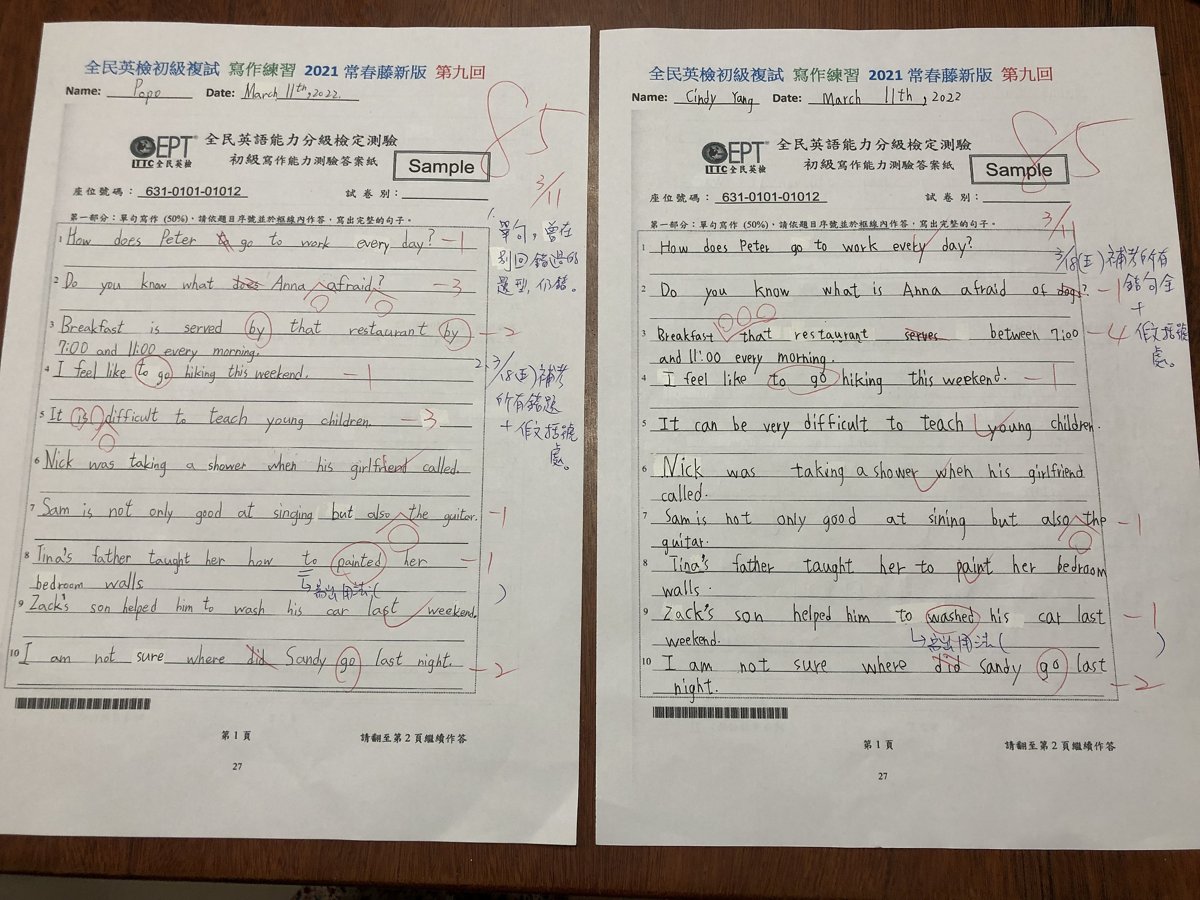 全民英檢初級複試 寫作練習 2021 常春藤新版 第九回
Name: Popo Date: March 11th, 2022.
85
GEPT
LTTC 全民英檢
全民英語能力分級檢定測驗
初級寫作能力測驗答案紙
Sample
3/11
座位號碼: 631-0101-01012 試卷別:
第一部分:單句寫作 (50%)、請依題目序號並於框線內作答,寫出完整的句子。
1 How does Peter to go to work every day? -1
2 Do you know what does Anna afraid? -3
3 Breakfast is served by that restaurant by -2
7:00 and 11:00 every morning.
4 I feel like to go hiking this weekend. -1
5 It is difficult to teach young children. -3
6 Nick was taking a shower when his girlfriend called.
7 Sam is not only good at singing but also the guitar. -1
8 Tina's father taught her how to painted her -1
bedroom walls
寫出用法( )
9 Zack's son helped him to wash his car last weekend.
10 I am not sure where did Sandy go last night. -2
1. 單句,曾在
別回錯過的
題型,仍錯。
2. 3/18(五)補考
所有錯題
+作文括號
處。
第 1 頁 請翻至第 2 頁繼續作答
27
全民英檢初級複試 寫作練習 2021 常春藤新版 第九回
Name: Cindy Yang Date: March 11th, 2022
85
GEPT
LTTC 全民英檢
全民英語能力分級檢定測驗
初級寫作能力測驗答案紙
Sample
座位號碼: 631-0101-01012 試卷別:
3/11
第一部分:單句寫作 (50%)、請依題目序號並於框線內作答,寫出完整的句子。
1 How does Peter go to work every day?
2 Do you know what is Anna afraid of dogs? -1
3 Breakfast that restaurant serves between 7:00 -4
and 11:00 every morning.
4 I feel like to go hiking this weekend. -1
5 It can be very difficult to teach young children.
6 Nick was taking a shower when his girlfriend
called.
7 Sam is not only good at sining but also the -1
guitar.
8 Tina's father taught her to paint her bedroom
walls.
9 Zack's son helped him to washed his car last -1
weekend.
寫出用法( )
10 I am not sure where did Sandy go last -2
night.
3/18(五)補考所有
錯句全
+
作文括號
處。
第 1 頁 請翻至第 2 頁繼續作答
27